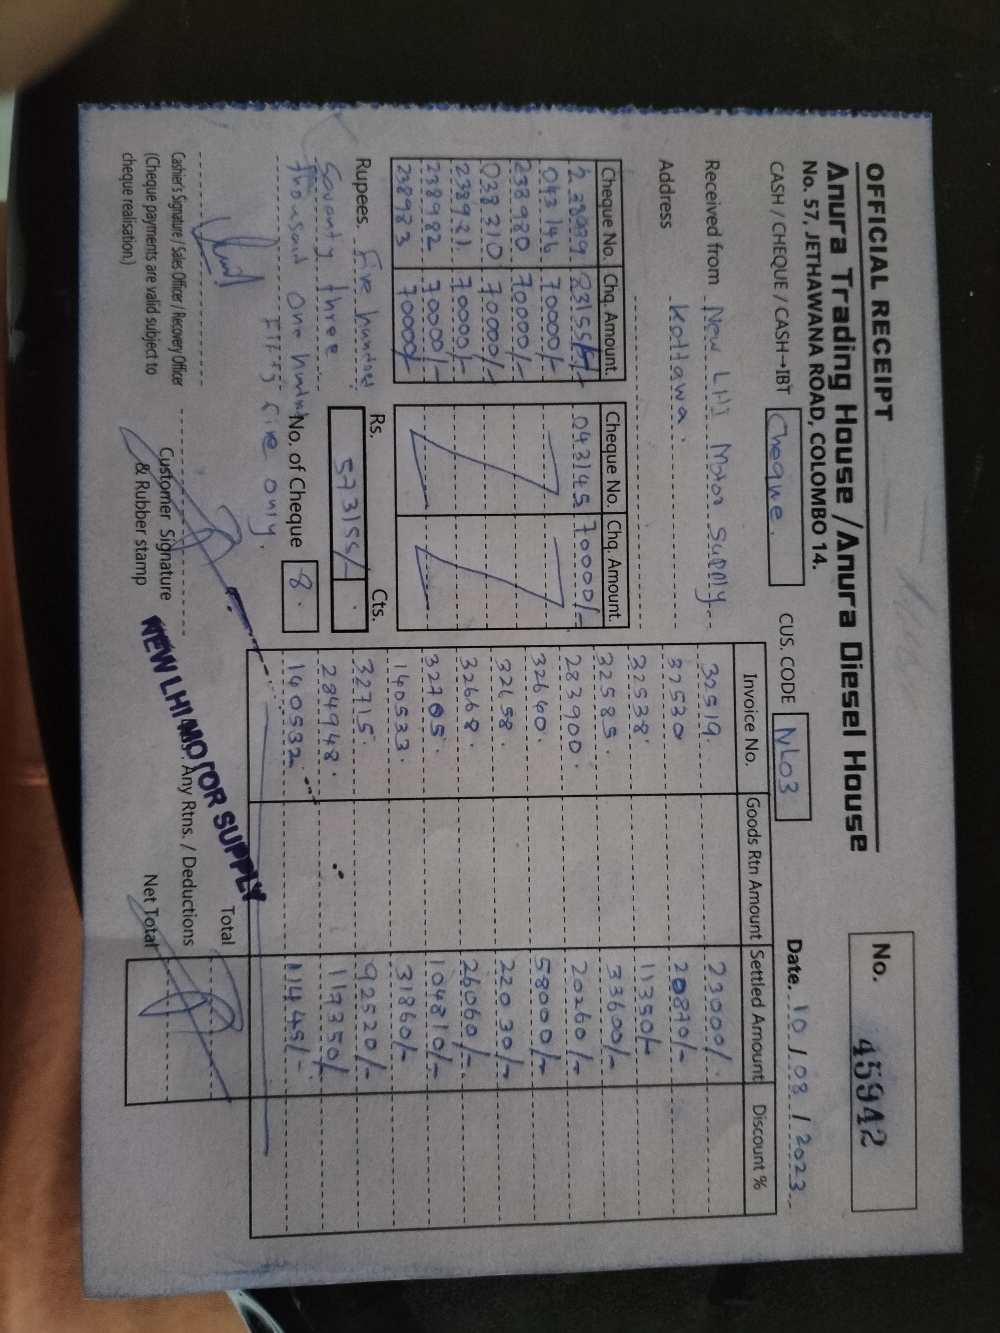 OFFICIAL RECEIPT
No. 45942
Anura Trading House / Anura Diesel House
No. 57, JETHAWANA ROAD, COLOMBO 14.
CASH / CHEQUE / CASH→IBT Cheque.
CUS. CODE NL03
Date. 10 / 08 / 2023
Received from New LHI Motor Supply
Address Kottawa.
Cheque No. Chq. Amount. Cheque No. Chq. Amount.
83155/- 043145 70000/-
043146 70000/-
238980 70000/-
038310 70000/-
238981 70000/-
238982 70000/-
238983 70000/-
Rupees. Five hundred
Savanty three
thousand one hundred
Fifty five only.
Rs. Cts.
573155/-
No. of Cheque 8.
Invoice No. Goods Rtn Amount Settled Amount Discount %
32519. 23000/-
32530 20870/-
32538 11350/-
32585 33600/-
283900. 20260/-
32640. 58000/-
32658. 22030/-
32668. 26060/-
32705. 104810/-
140533. 31860/-
32715. 92520/-
284948. 117350/-
140532 11445/-
Total
Any Rtns. / Deductions
Net Total
Cashier's Signature / Sales Officer / Recovery Officer
(Cheque payments are valid subject to
cheque realisation.)
Customer Signature
& Rubber stamp
NEW LHI MOTOR SUPPLY